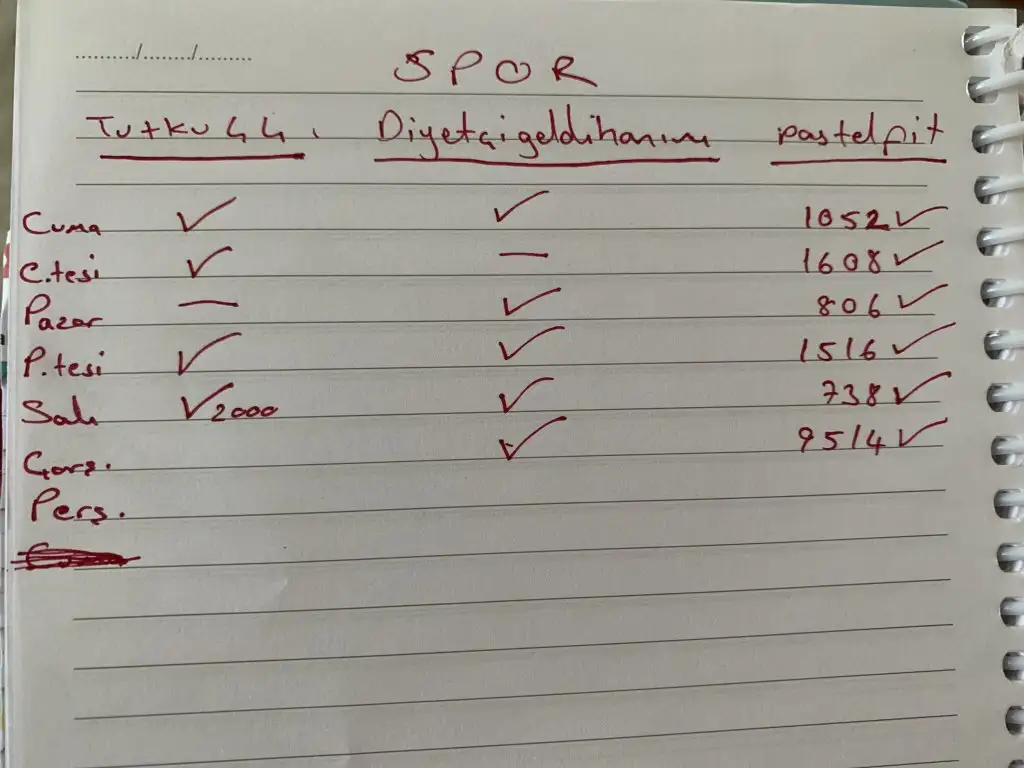 ....../......./.........
SPOR
Tutku44. Diyetçigeldihanım pastelpit
Cuma ✓ ✓ 1052✓
C.tesi ✓ — 1608✓
Pazar — ✓ 806✓
P.tesi ✓ ✓ 1516✓
Salı ✓2000 ✓ 738✓
Çarş. ✓ 9514✓
Perş.